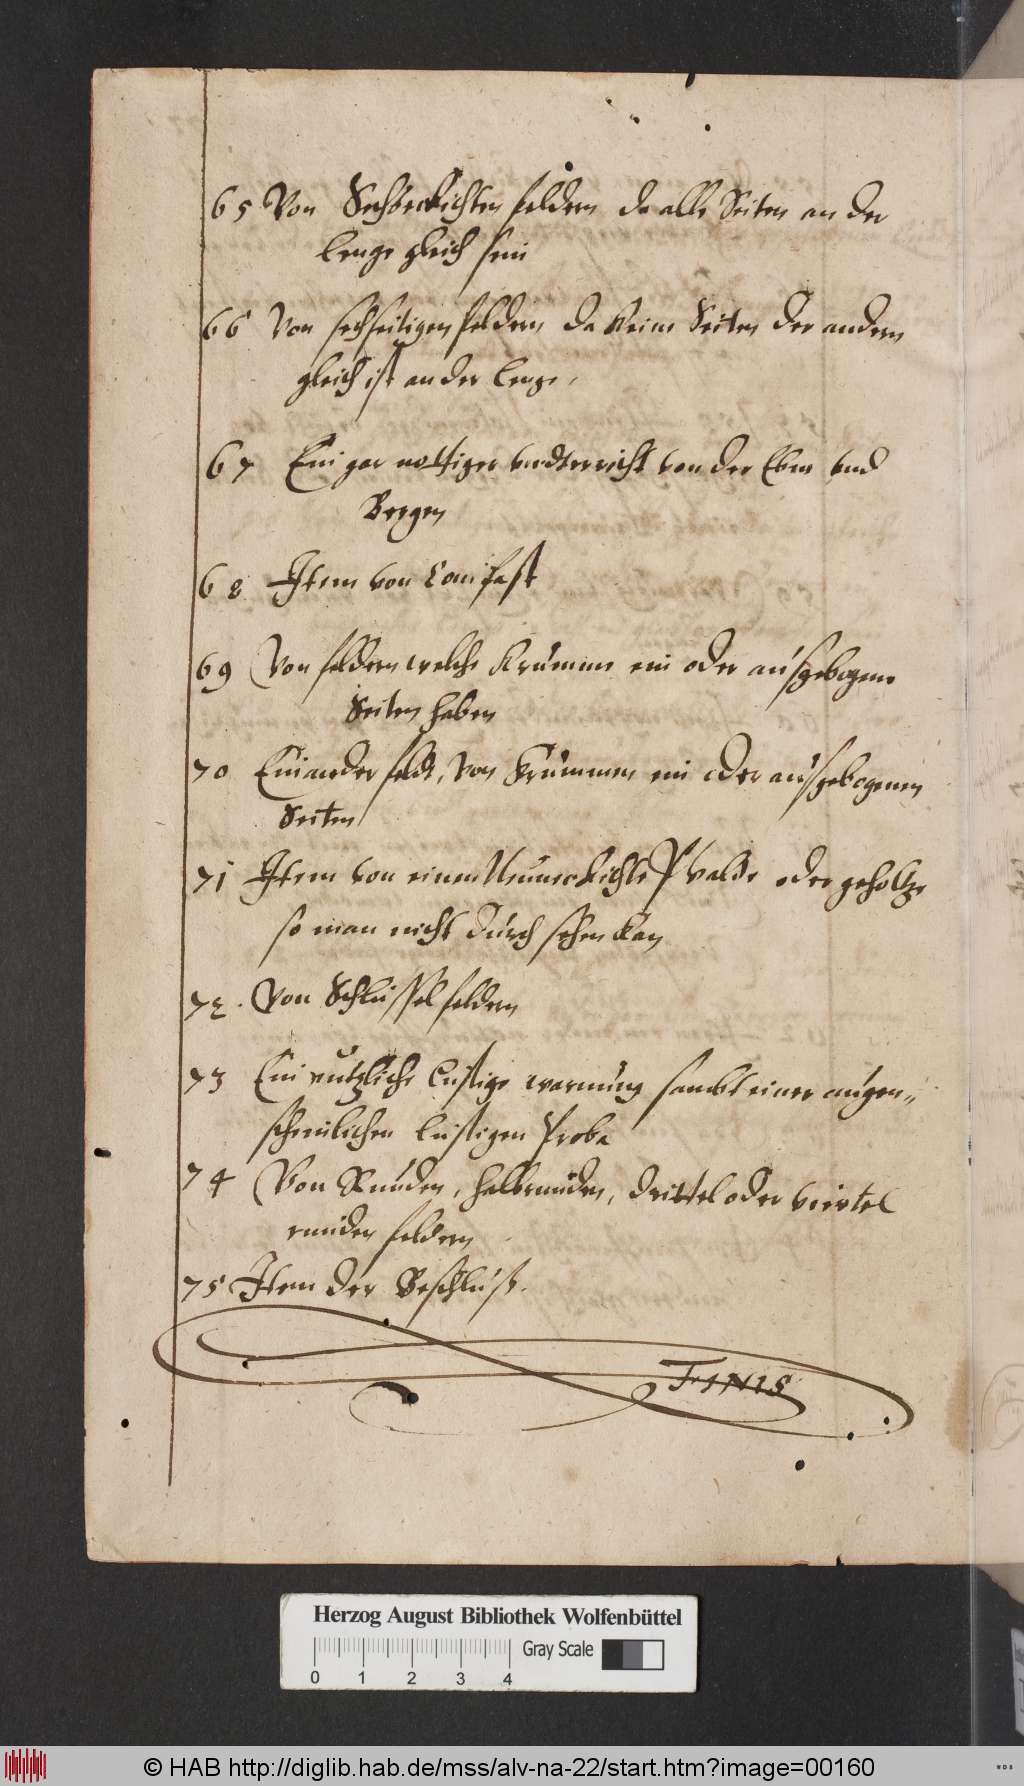 65 Von Sechseckichten feldern da alle Seiten an der
lenge gleich sein
66 Von sechseitigen feldern da keine Seiten der andern
gleich ist an der lenge,
67 Ein gar nottiger undterricht von der Ebne vnd
Bergen
68 Item von Compast
69 Von feldern welche krumme ein oder ausgebogene
Seiten haben
70 Ein ander feldt, von krummen ein oder ausgebogenen
Seiten
71 Item von einem Walde oder geholtze
so man nicht durch sehen kan
72. Von Schlüssel feldern
73 Ein nutzliche lustige warnung sambt einer augen„
scheinlichen lustigen Proba
74 Von Runden, halbrunden, drittel oder viertel
runden feldern
75 Item der Beschluß.
FINIS
Herzog August Bibliothek Wolfenbüttel
Gray Scale
0 1 2 3 4
© HAB http://diglib.hab.de/mss/alv-na-22/start.htm?image=00160